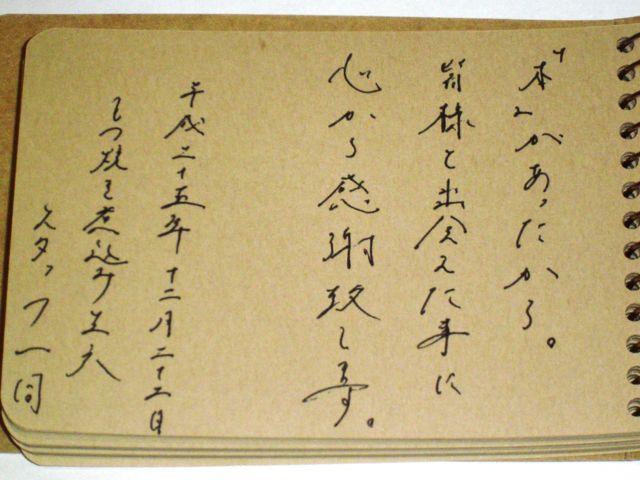 "本"があったから。
皆様と出会えた事に
心から感謝致します。
平成二十五年十二月二十二日
もつ焼き煮込み
スタッフ一同